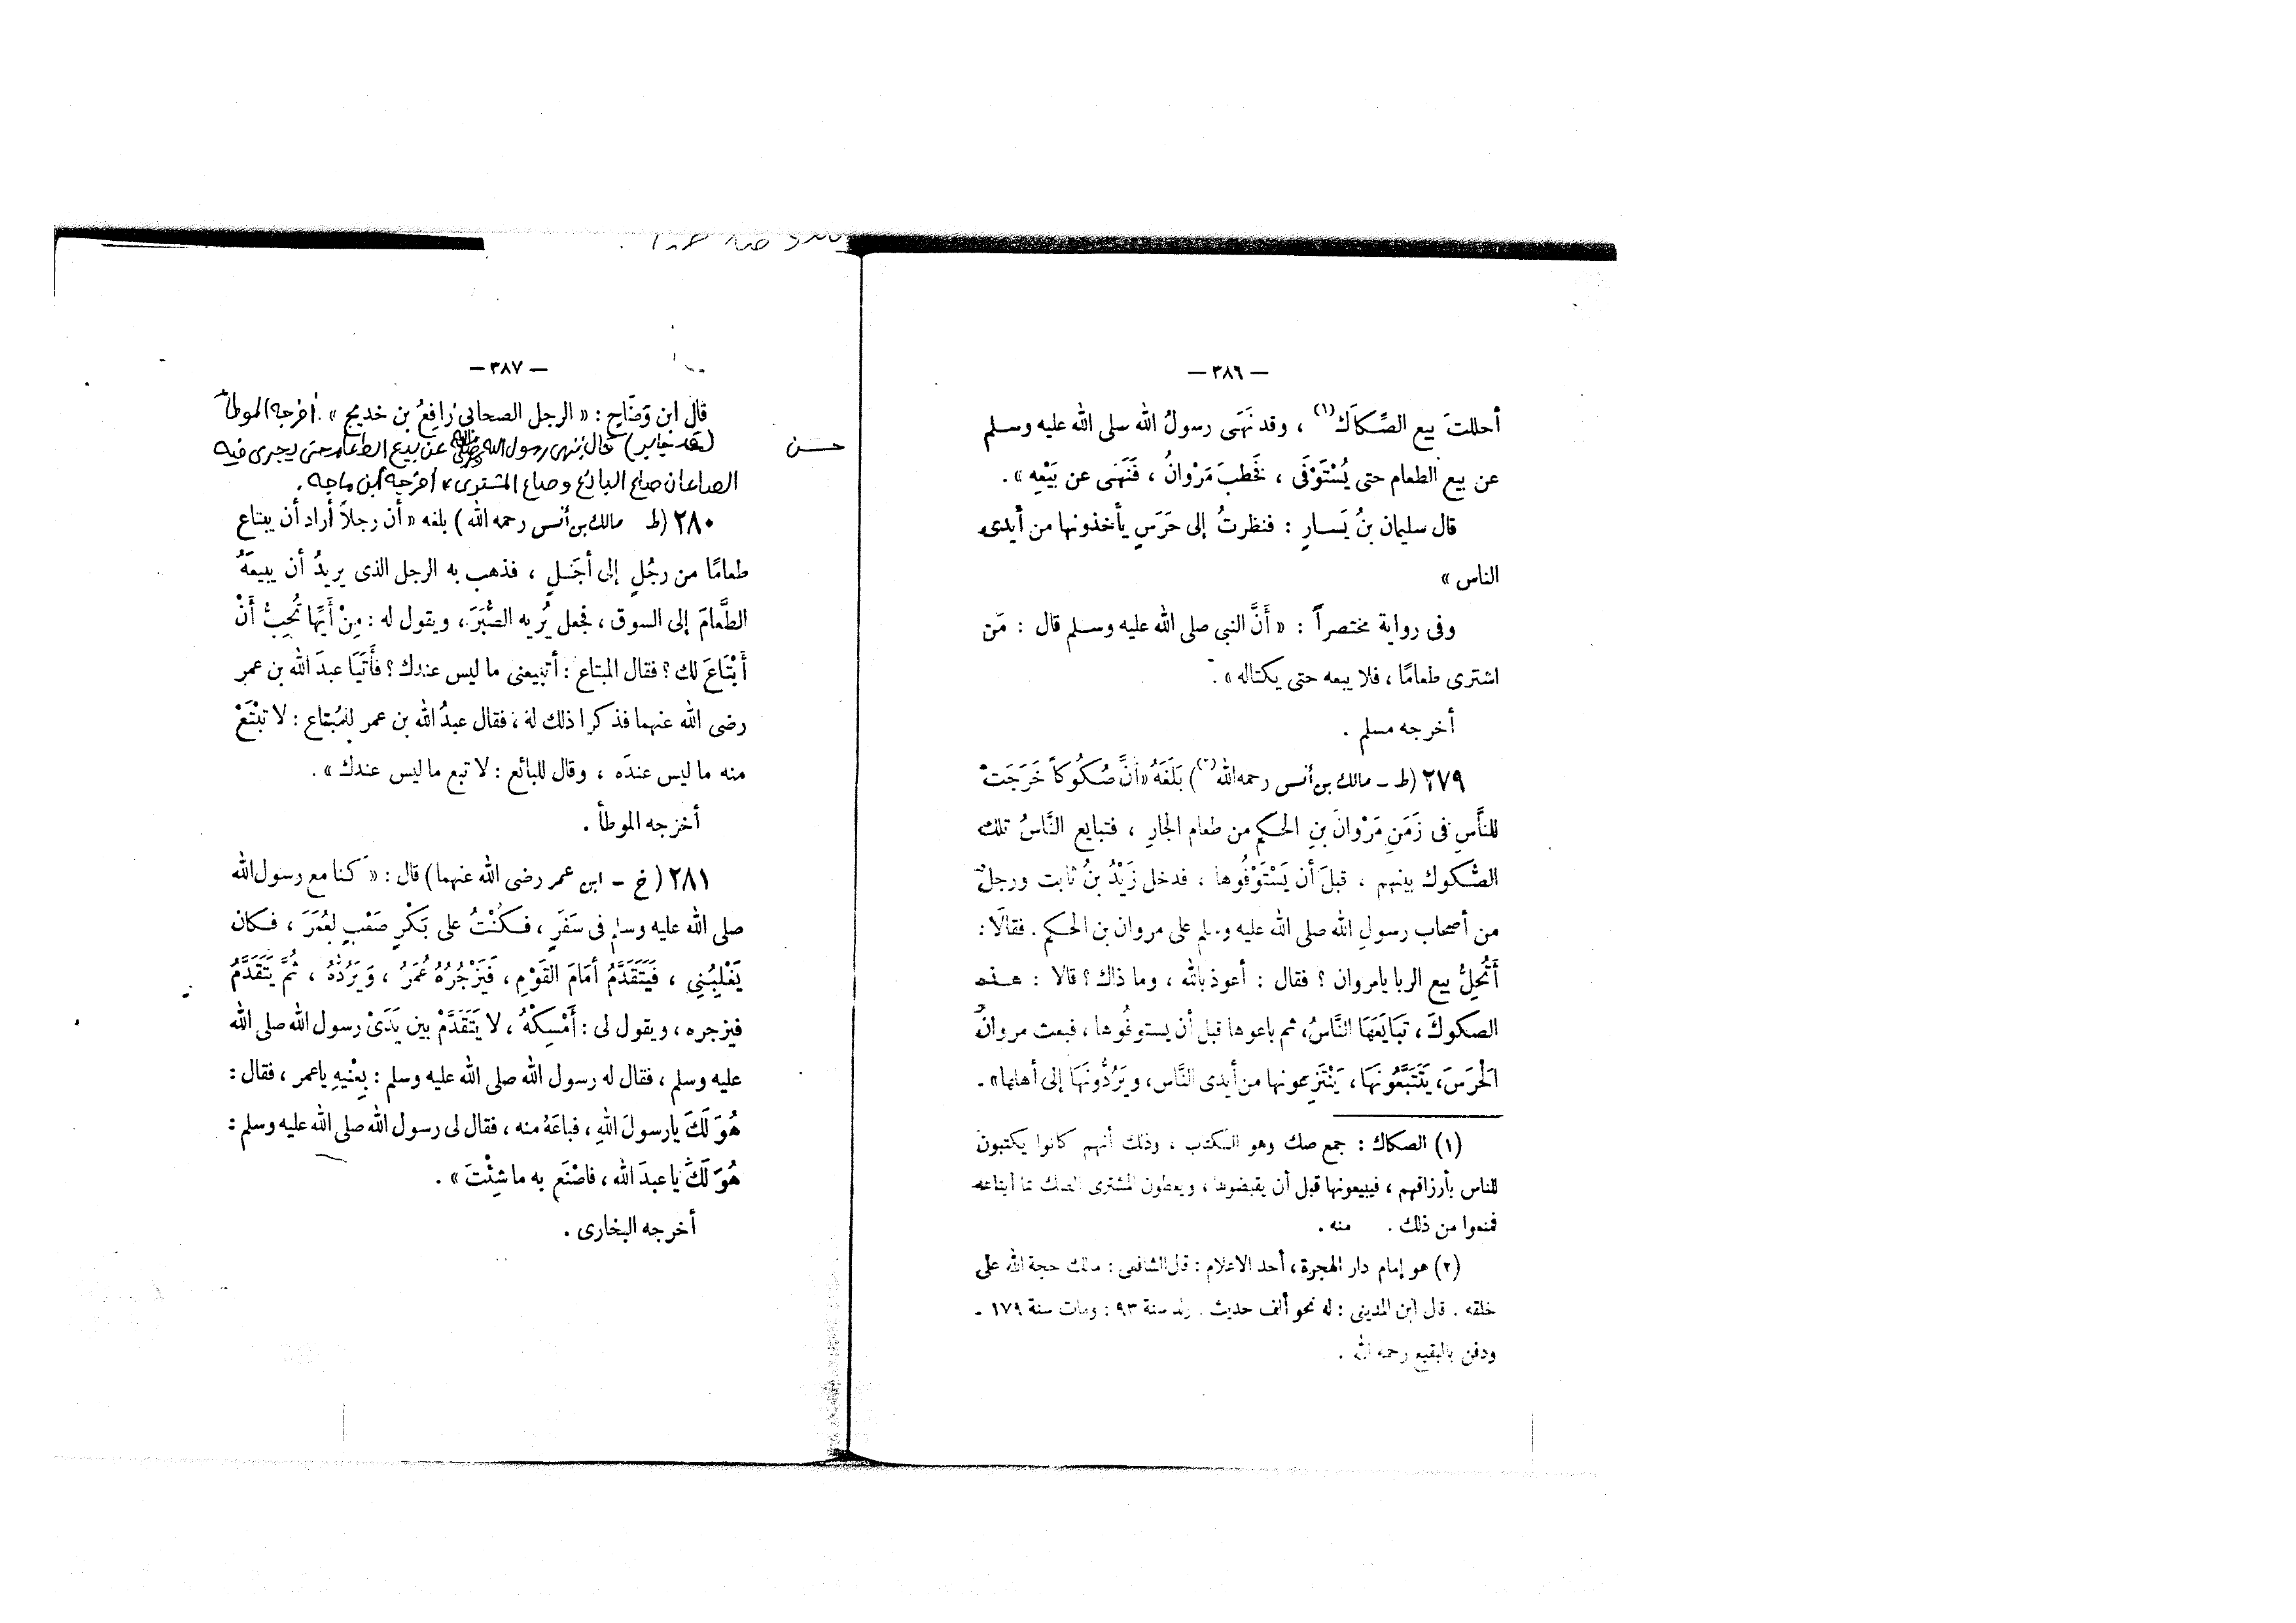 — ٣٨٦ —
أحللتَ بيع الصِّكاَك(١) ، وقد نَهَى رسولُ الله صلى الله عليه وسلم
عن بيع الطعام حتى يُسْتَوْفَى ، فَخطبَ مَرْوانُ ، فَنَهَى عن بَيْعِهِ » .
قال سليمان بنُ يَسارٍ : فنظرتُ إلى حَرَسٍ يأخذونها من أيدى
الناس »
وفى رواية مختصراً : « أَنَّ النبى صلى الله عليه وسلم قال : مَن
اشترى طعامًا ، فلا يبعه حتى يكتاله » .
أخرجه مسلم .
٢٧٩ (ط ـ مالك بن أنس رحمه الله(٢)) بَلَغَهُ « أنَّ صُكُوكاً خَرَجَتْ
للنَّاسِ فى زَمَنِ مَرْوانَ بنِ الحكم من طعام الجارِ ، فتبايع النَّاسُ تلك
الصُّكوك بينهم ، قبلَ أن يَسْتَوْفُوها ، فدخل زَيْدُ بنُ ثابت ورجلٌ
من أصحاب رسولِ الله صلى الله عليه وسلم على مروان بن الحكم . فقالَا :
أَتُحِلُّ بيع الربا يامروان ؟ فقال : أعوذ بالله ، وما ذاك ؟ قالا : هذه
الصكوكَ ، تَبَايَعَهَا النَّاسُ ، ثم باعوها قبل أن يستوفُوها ، فبعث مروانُ
الْحَرَسَ ، يَتَتَبَّعُونَهَا ، يَنْتَزِعونها من أيدى النَّاس ، ويَرُدُّونَهَا إلى أهلها » .
(١) الصكاك : جمع صك وهو الكتاب ، وذلك أنهم كانوا يكتبون
للناس بأرزاقهم ، فيبيعونها قبل أن يقبضوها ، ويعطون المشترى الصك بما ابتاعه
فمنعوا من ذلك . منه .
(٢) هو إمام دار الهجرة ، أحد الاعلام : قال الشافعى : مالك حجة الله على
خلقه . قال ابن المدينى : له نحو ألف حديث . ولد سنة ٩٣ : ومات سنة ١٧٩ ـ
ودفن بالبقيع رحمه الله .
— ٣٨٧ —
قال ابن وَضَّاحٍ : « الرجل الصحابى رَافِعُ بن خديج » . أخرجه الموطأ
حسن
جابر) قال نهى رسول الله ﷺ عن بيع الطعام حتى يجرى فيه
الصاعان صاع البائع وصاع المشترى » أخرجه ابن ماجه .
٢٨٠ (ط مالك بن أنس رحمه الله) بلغه « أن رجلاً أراد أن يبتاع
طعامًا من رجُلٍ إلى أجَلٍ ، فذهب به الرجل الذى يريدُ أن يبيعَهُ
الطَّعامَ إلى السوق ، فجعل يُريه الصُّبَرَ ، ويقول له : مِنْ أَيِّهاَ تُحِبُّ أَنْ
أَبْتَاعَ لك ؟ فقال المبتاع : أتبيعنى ما ليس عندك ؟ فأَتَيَا عبدَ الله بن عمر
رضى الله عنهما فذكرا ذلك له ، فقال عبدُ الله بن عمر للمُبتاع : لا تَبْتَعْ
منه ما ليس عندَه ، وقال للبائع : لا تبع ما ليس عندك » .
أخرجه الموطأ .
٢٨١ (خ ـ ابن عمر رضى الله عنهما) قال : « كنا مع رسول الله
صلى الله عليه وسلم فى سَفَرٍ ، فكُنْتُ على بَكْرٍ صَعْبٍ لِعُمَرَ ، فكان
يَغْلِبُنِى ، فَيَتَقَدَّمُ أمَامَ القَوْمِ ، فَيَزْجُرُهُ عُمَرُ ، وَيَرُدُّهُ ، ثُمَّ يَتَقَدَّمُ
فيزجره ، ويقول لى : أَمْسِكْهُ ، لا يَتَقَدَّمْ بين يَدَىْ رسول الله صلى الله
عليه وسلم ، فقال له رسول الله صلى الله عليه وسلم : بِعْنِيهِ ياعمر ، فقال :
هُوَ لَكَ يارسولَ اللهِ ، فباعَهُ منه ، فقال لى رسول الله صلى الله عليه وسلم :
هُوَ لَكَ ياعبدَ الله ، فاصْنَع به ما شِئْتَ » .
أخرجه البخارى .